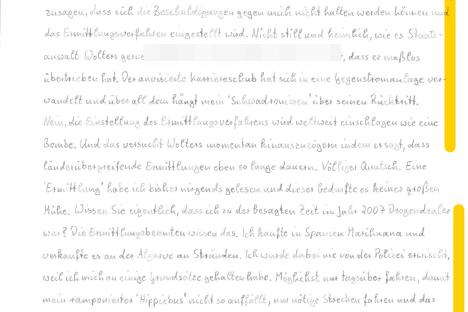 zusagen, dass sich die Beschuldigungen gegen mich nicht halten werden können und
das Ermittlungsverfahren eingestellt wird. Nicht still und heimlich, wie es Staats-
anwalt Wolters gerne , dass er maßlos
übertrieben hat. Der anvisierte Karriereschub hat sich in eine Gegenstromanlage ver-
wandelt und über all dem hängt mein 'Schwadronieren' über seinen Rücktritt.
Nein, die Einstellung des Ermittlungsverfahrens wird weltweit einschlagen wie eine
Bombe. Und das versucht Wolters momentan hinauszuzögern indem er sagt, dass
länderübergreifende Ermittlungen eben so lange dauern. Völliger Quatsch. Eine
'Ermittlung' habe ich bisher nirgends gelesen und dieser bedurfte es keiner großen
Mühe. Wissen Sie eigentlich, dass ich zu der besagten Zeit im Jahr 2007 Drogendealer
war? Die Ermittlungsbeamten wissen das. Ich kaufte in Spanien Marihuana und
verkaufte es an der Algarve an Stränden. Ich wurde dabei nie von der Polizei erwischt,
weil ich mich an einige Grundsätze gehalten habe. Möglichst nur tagsüber fahren, damit
mein ramponierter 'Hippiebus' nicht so auffällt, nur nötige Strecken fahren und das